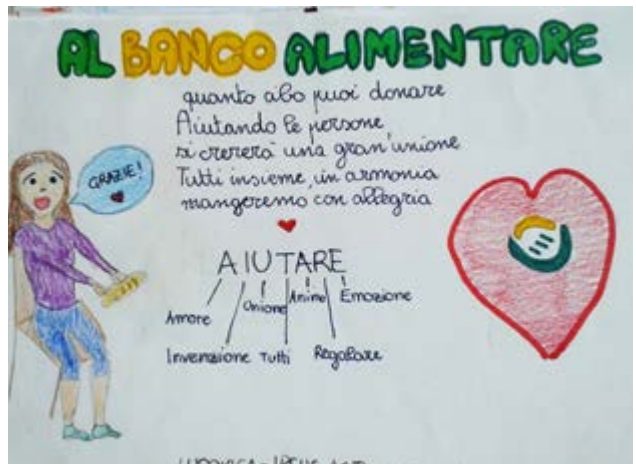 AL BANCO ALIMENTARE
quanto cibo puoi donare
Aiutando le persone
si creerera una gran'unione
Tutti insieme, in armonia
mangeremo con allegria
GRAZIE!
AIUTARE
Amore
Invenzione
Unione
Tutti
Anime
Regalare
Emozione